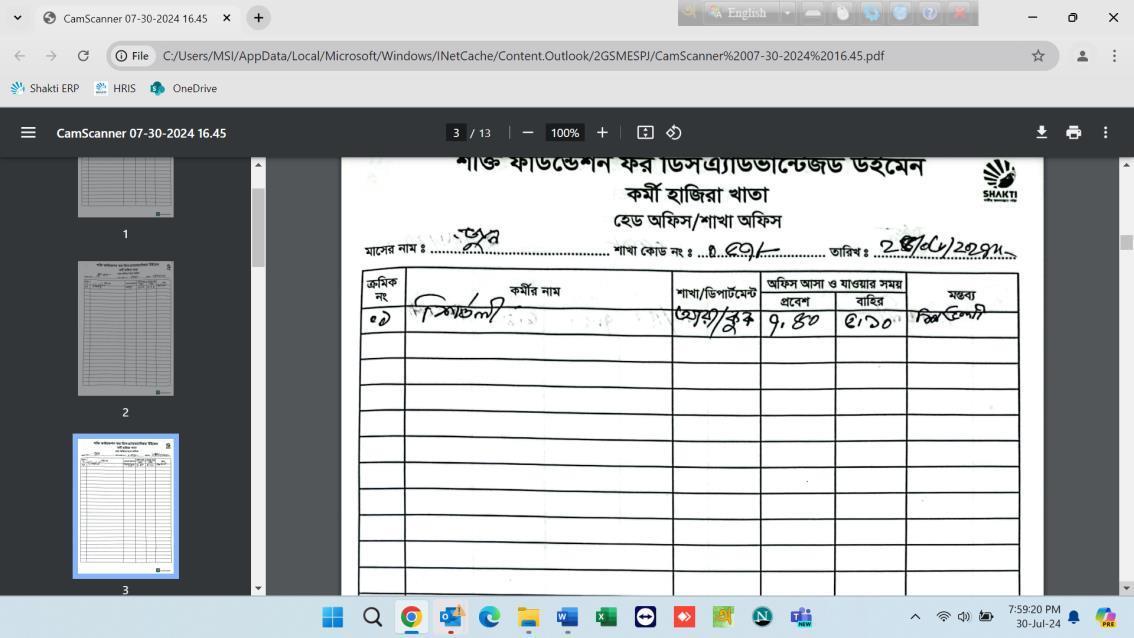 CamScanner 07-30-2024 16.45
English
File C:/Users/MSI/AppData/Local/Microsoft/Windows/INetCache/Content.Outlook/2GSMESPJ/CamScanner%2007-30-2024%2016.45.pdf
Shakti ERP HRIS OneDrive
CamScanner 07-30-2024 16.45 3 / 13 100%
শক্তি ফাউন্ডেশন ফর ডিসএ্যাডভান্টেজড উইমেন
কর্মী হাজিরা খাতা
SHAKTI
হেড অফিস/শাখা অফিস
মাসের নাম : শাখা কোড নং : তারিখ :
ক্রমিক নং কর্মীর নাম শাখা/ডিপার্টমেন্ট অফিস আসা ও যাওয়ার সময় মন্তব্য
প্রবেশ বাহির
০১ ৭.৪০ ৫.১০
1
2
3
7:59:20 PM
30-Jul-24